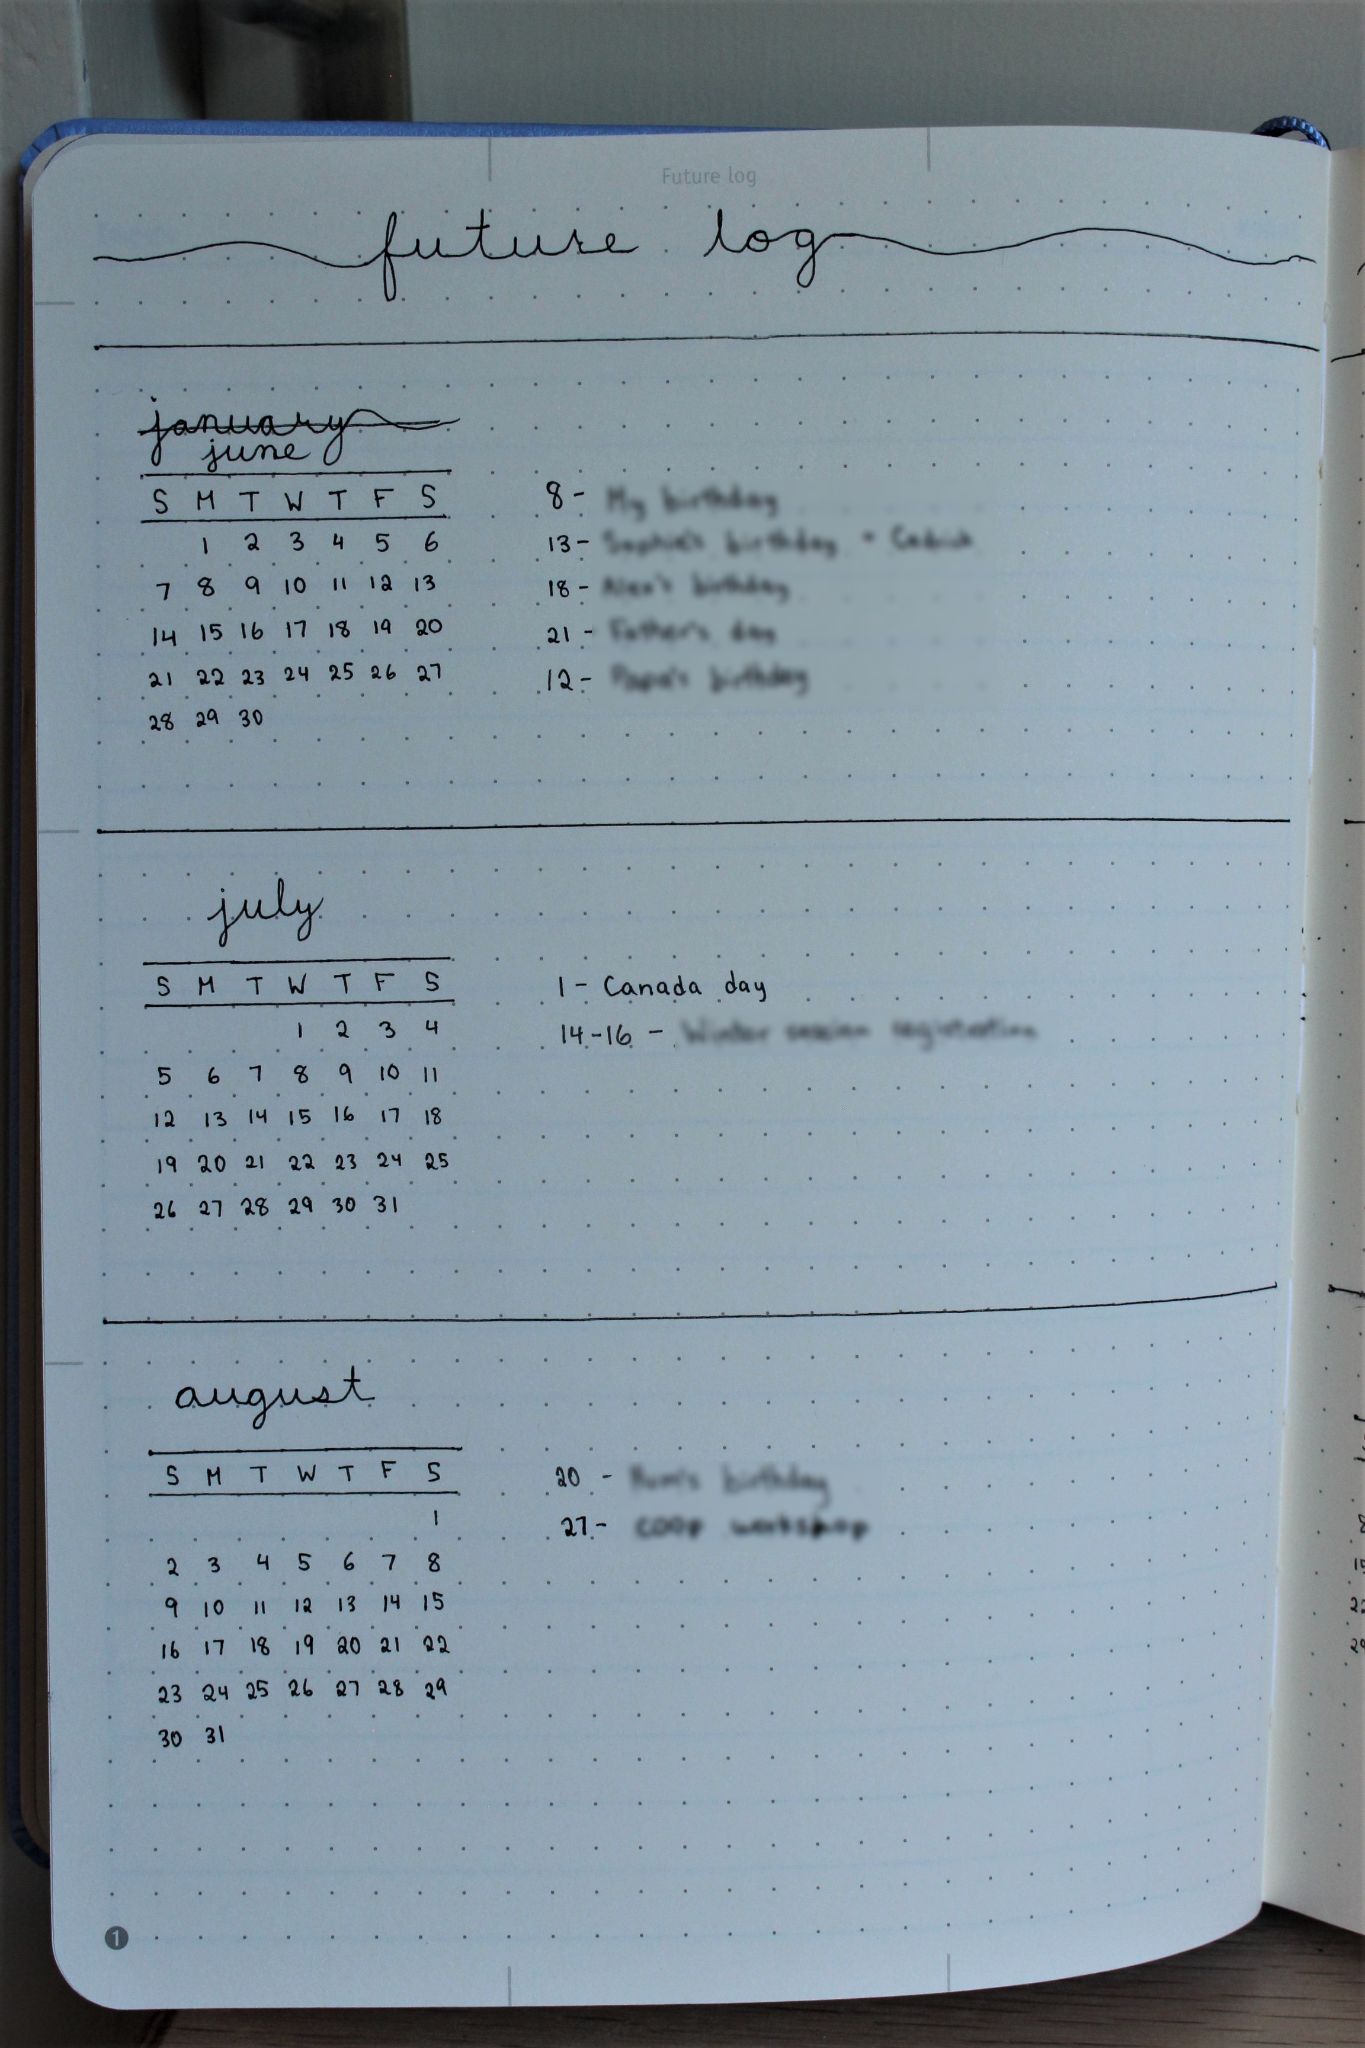 Future log
future log
january
june
S M T W T F S
1 2 3 4 5 6
7 8 9 10 11 12 13
14 15 16 17 18 19 20
21 22 23 24 25 26 27
28 29 30
8 -
13 -
18 -
21 -
12 -
july
S M T W T F S
1 2 3 4
5 6 7 8 9 10 11
12 13 14 15 16 17 18
19 20 21 22 23 24 25
26 27 28 29 30 31
1 - Canada day
14-16 -
august
S M T W T F S
1
2 3 4 5 6 7 8
9 10 11 12 13 14 15
16 17 18 19 20 21 22
23 24 25 26 27 28 29
30 31
20 -
27 -
1